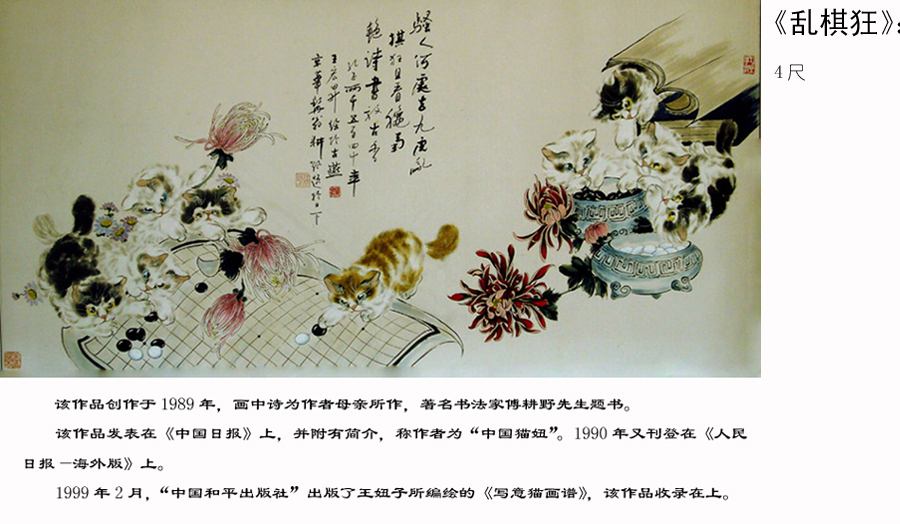 《乱棋狂》:
4尺
骚人何处去九度乱
棋狂且看
艳诗书
该作品创作于1989年，画中诗为作者母亲所作，著名书法家傅耕野先生题书。
该作品发表在《中国日报》上，并附有简介，称作者为“中国猫妞”。1990年又刊登在《人民
日报－海外版》上。
1999年2月，“中国和平出版社”出版了王妞子所编绘的《写意猫画谱》，该作品收录在上。